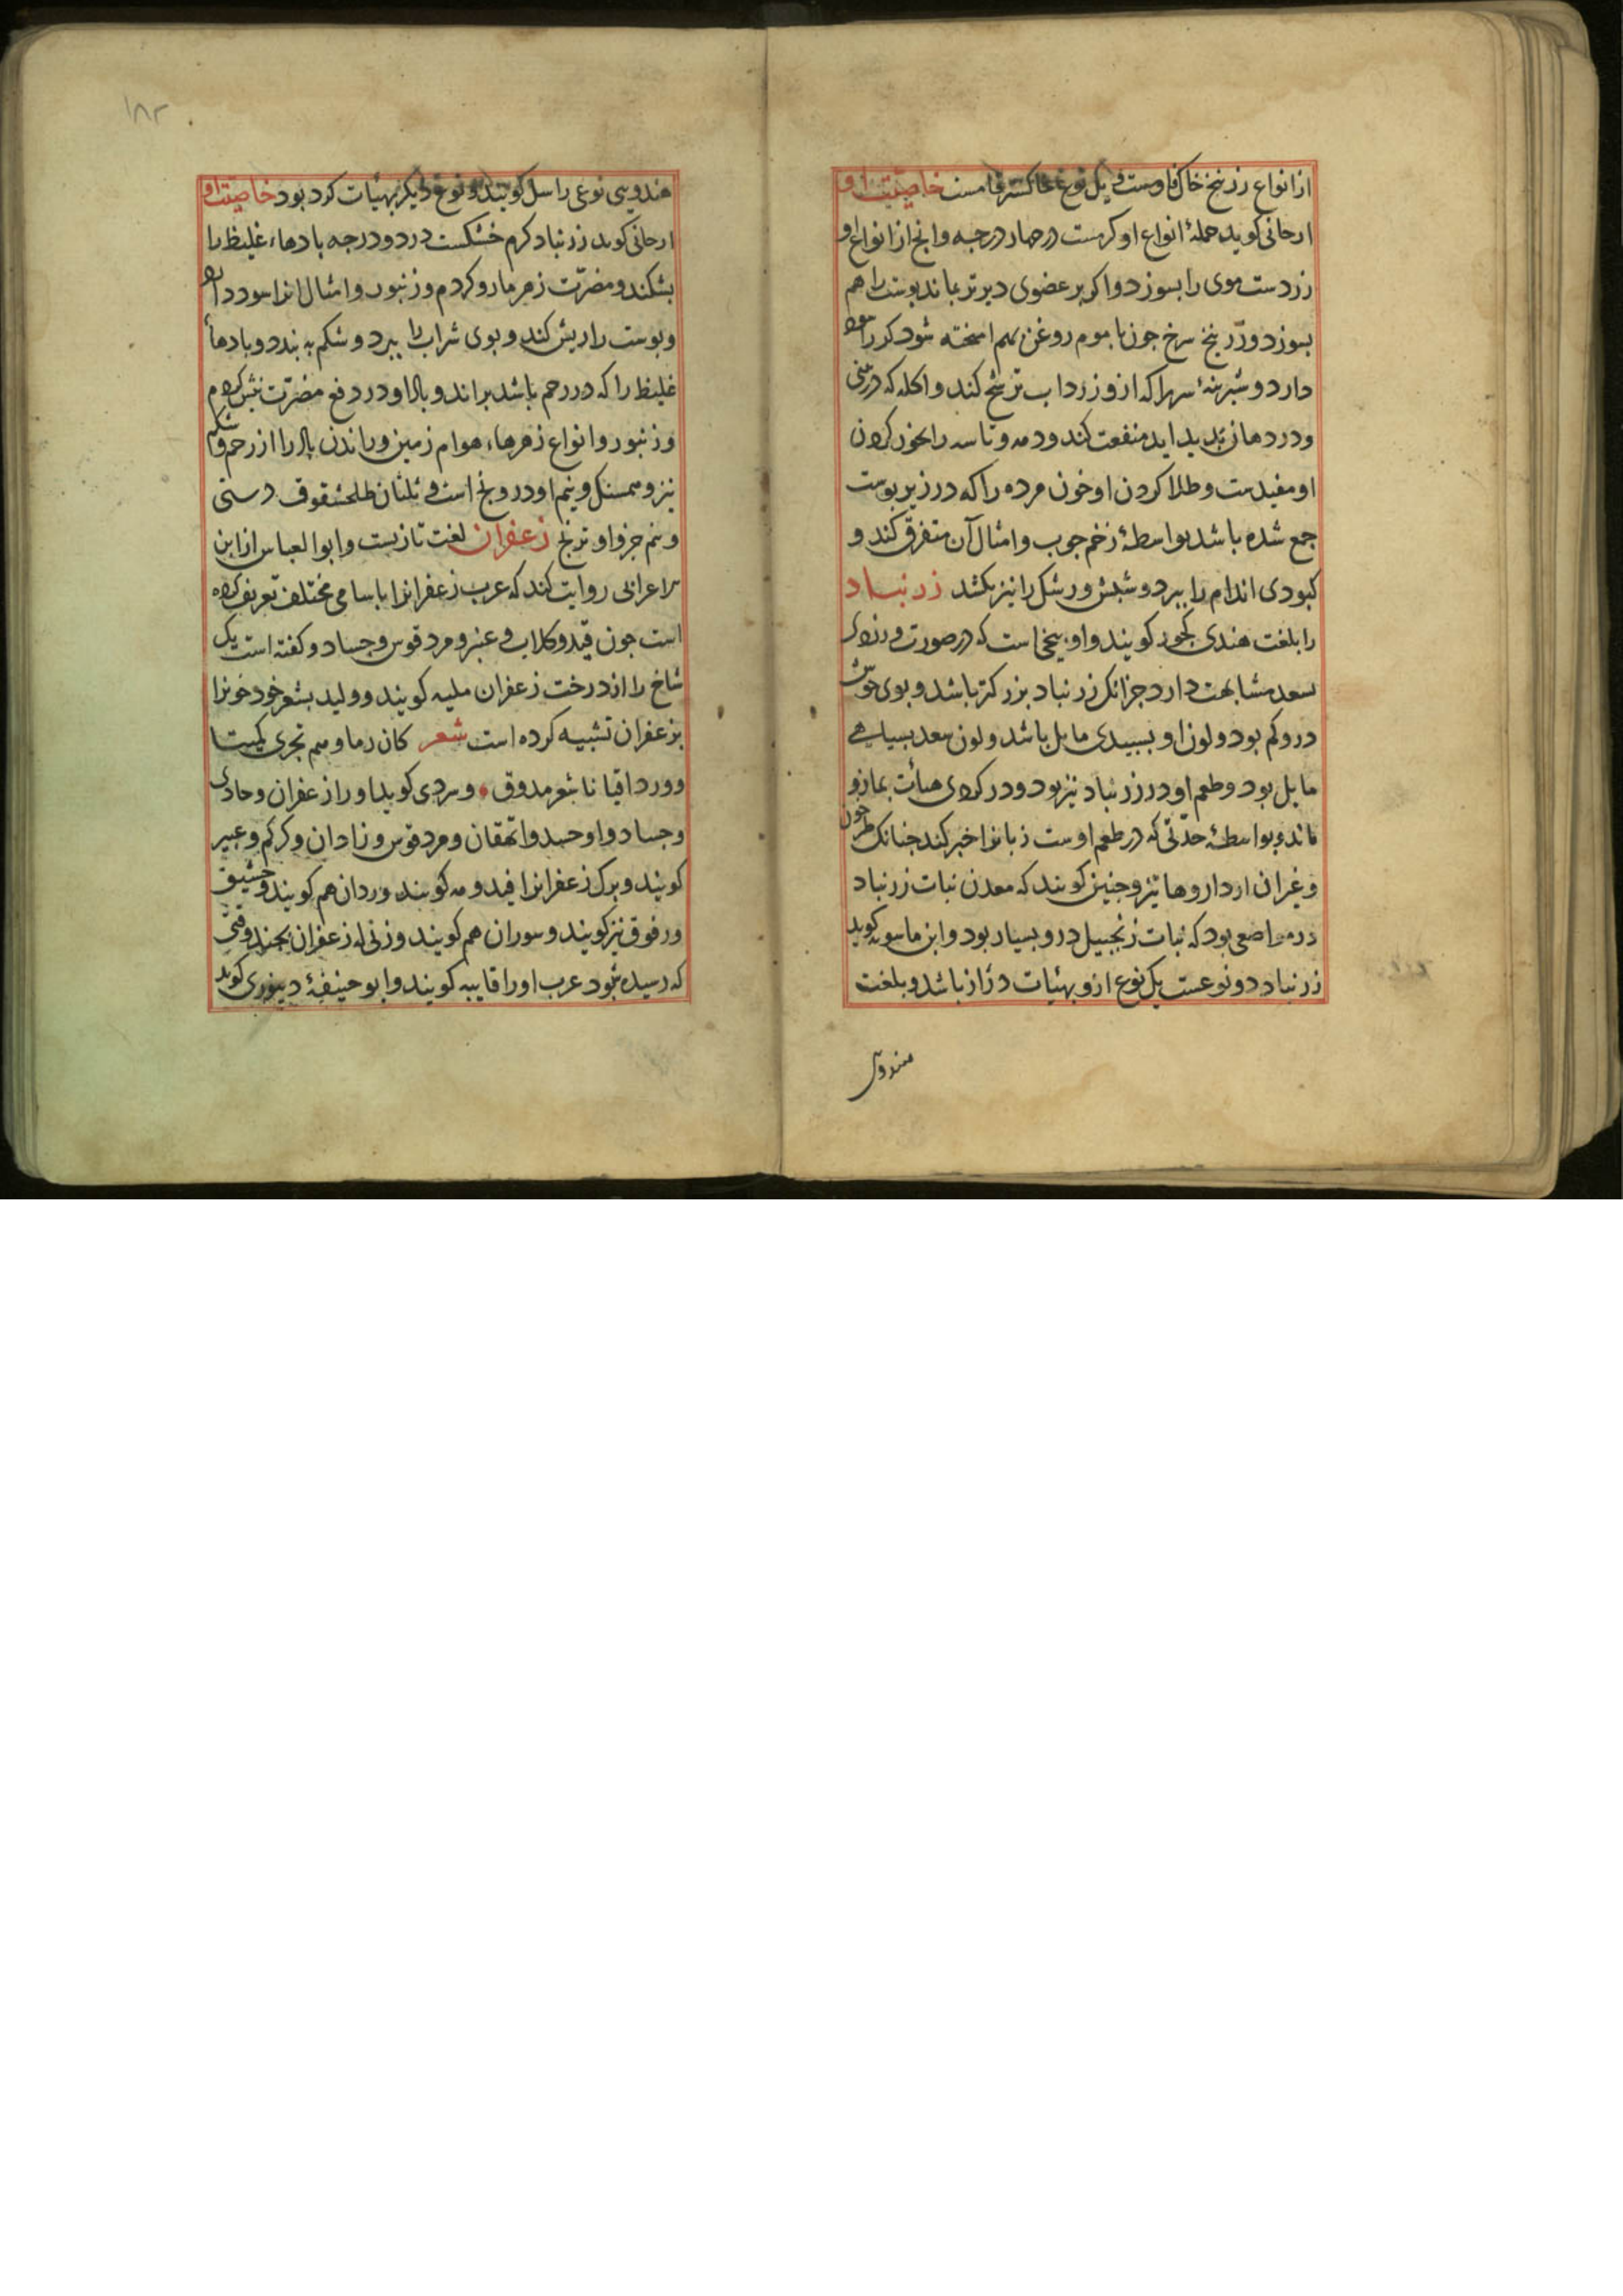 از انواع زرنیخ خاک فامست و یک نوع خاکستر فامست خاصیت او
ارجانی کوید جملهٔ انواع او کرمست در چهار درجه و انج از انواع او
زردست موی را بسوزد و اکر بر عضوی دیرتر بماند بوست را هم
بسوزد و زرنیخ سرخ جون با موم روغن بهم امیخته شود کر را سود
دارد و شیرینهٔ سر را که ازو زرداب ترشح کند و اکله که در بینی
و در دهان بدید اید منفعت کند و دمه و تاسه را بخور کردن
او مفیدست و طلا کردن او خون مرده را که در زیر بوست
جمع شده باشد بواسطهٔ زخم جوب و امثال آن متفرق کند و
کبودی اندام را ببرد و شبش و رشک را نیز بکشد زرنباد
را بلغت هندی کجور کویند و او بیخی است که در صورت و زردی
بسعد مشابهت دارد جز انک زرنباد بزرکتر باشد و بوی خوش
درو کم بود و لون او بسبیدی مایل باشد و لون سعد بسیاهی
مایل بود و طعم او در زرنباد تیز بود و در کردی هیأت بمازو
ماند و بواسطهٔ حدّتی که در طعم اوست زبانرا خبر کند جنانک طرخون
و غیر ان از داروهاء تیز و جنین کویند که معدن نبات زرنباد
در مواضعی بود که نبات زنجبیل درو بسیار بود و ابن ماسویه کوید
زرنباد دو نوعست یک نوع ازو بهیات دراز باشد و بلغت
هندوی
١٨٢
هندوی نوعی را سل کویند و نوع دیکر بهیات کرد بود خاصیت او
ارجانی کوید زرنباد کرم خشکست در دو درجه بادهاء غلیظ را
بشکند و مضرّت زهر مار و کژدم و زنبور و امثال انرا سود دارد
و بوست را ریش کند و بوی شراب را ببرد و شکم به بندد و بادهاء
غلیظ را که در رحم باشد براند و بدل او در دفع مضرّت نیش کژدم
و زنبور و انواع زهرهاء هوام زمین و راندن باد را از رحم و شکم
نیز و همسنک و نیم او درونج است و ثلثان طلحشقوق دستی
و نیم جزو او ترنج زعفران لغت تازیست و ابو العباس از ابن
اعرابی روایت کند که عرب زعفرانرا باسامی مختلف تعریف کرده
است جون فید و کلاب و عنبر و مردقوس و جساد و کفته است یک
شاخ را از درخت زعفران ملیه کویند و ولید بشعر خود خونرا
بزعفران تشبیه کرده است شعر کان دماوهم تجری کمیتا
و وردا قیا نا شعر مدوق • و سردی کوید او را زعفران و جادی
و جساد و اوحسد و اتهقان و مردقوس و زادان و کرکم و عبیر
کویند و برک زعفرانرا فید و مه کویند وردان هم کویند و حشیق
و رفوق نیز کویند و سوران هم کویند و زنی که زعفران بجیند وقتی
که رسیده شود عرب او را قابیه کویند و ابو حنیفهٔ دینوری کوید